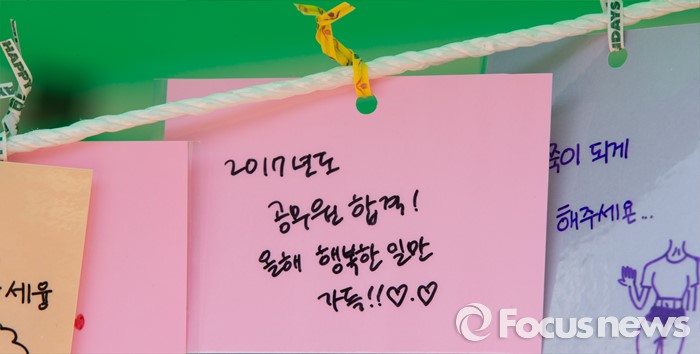 HAPPY
DAYS
2017년도
공무원 합격!
올해 행복한 일만
가득!!♡.♡
죽이 되게
해주세요..
세융
Focusnews